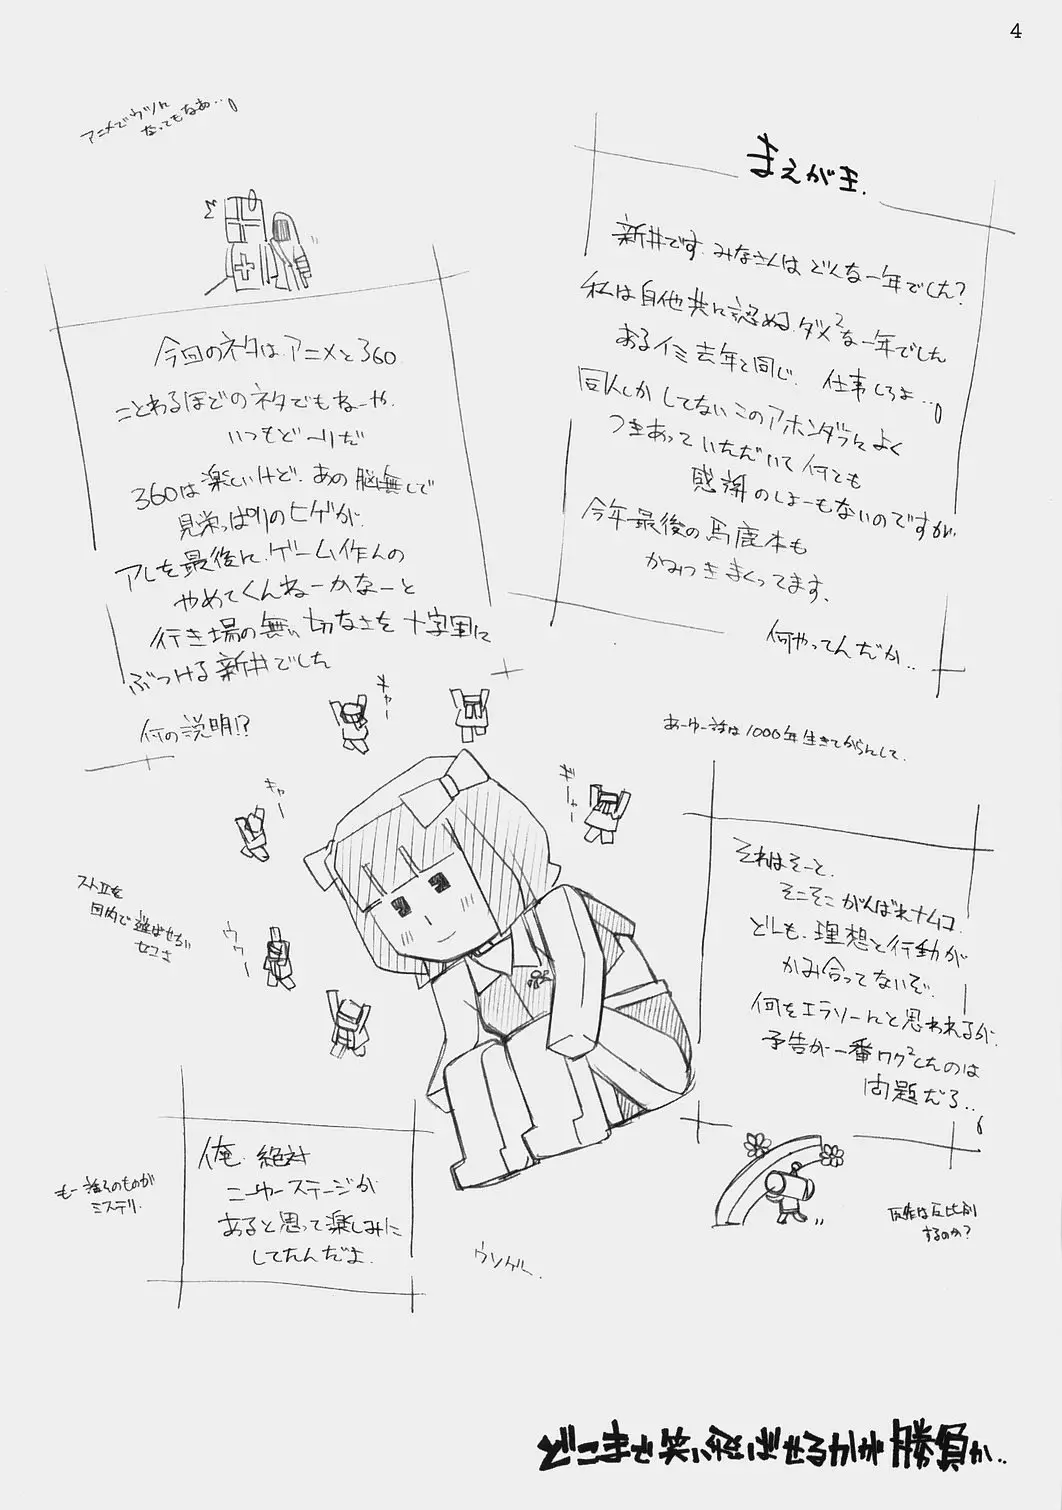 4
まえがき.
新井です.みなさんは どんな一年でした?
私は自他共に認めるダメ²な一年でした
あるイミ去年と同じ. 仕事しろよ…
同人しか してない このアホンダラによく
つきあって いただいて 何とも
感謝のしよーもないのですが
今年最後の馬鹿本も
かみつきまくってます.
何やってんだか..
アニメでウツに
なってもなあ…
今回のネタは アニメと360
ことわるほどの ネタでもねーや.
いつもど〜りだ
360は楽しいけど.あの脳無しで
見栄っぱりのヒゲが.
アレを最後に.ゲーム作んの
やめてくんねーかなーと
行き場の無い切なさを十字軍に
ぶつける新井でした
何の説明!?
ギャー
キャー
ギャー
ウワー
あーゆー話は1000年生きてからんして.
それはそーと.
そこそこ がんばれナムコ
どーも.理想と行動が
かみ合ってないぞ.
何をエラソーにと思われるが.
予告が一番ワク²したのは
問題だろ..
反応は反比例
するのか?
ストIIを
国内で遊ばせない
セコさ
俺.絶対
ニューヨーステージが
あると思って楽しみに
してたんだよ.
もー誰そのものが
ミステリ.
ウソゲー.
どこまで笑い飛ばせるかが勝負か..